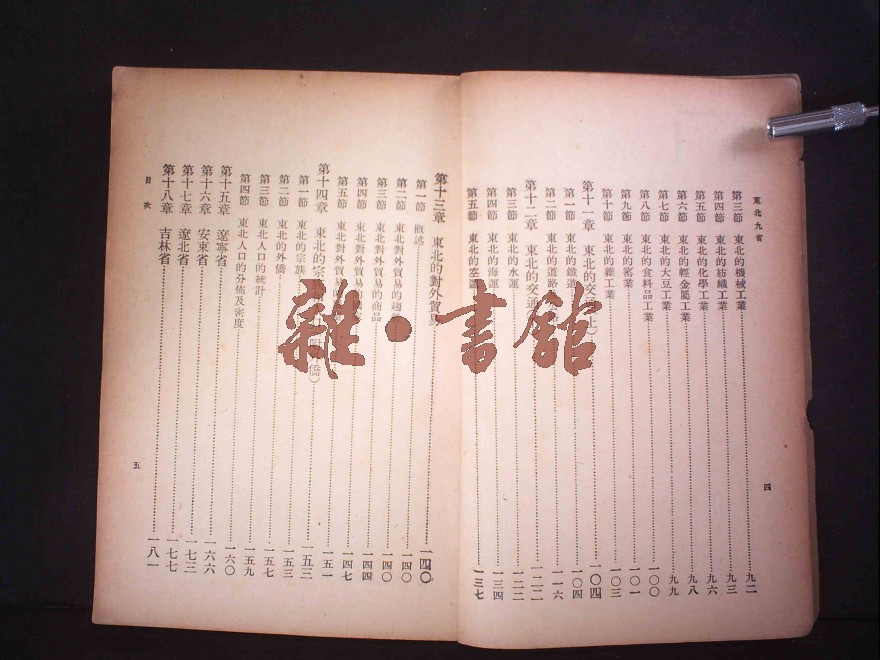 東北九省
第三節 東北的機械工業 九二
第四節 東北的紡織工業 九三
第五節 東北的化學工業 九六
第六節 東北的輕金屬工業 九八
第七節 東北的大豆工業 九九
第八節 東北的食料品工業 一〇〇
第九節 東北的窰業 一〇一
第十節 東北的雜工業 一〇三
第十一章 東北的交通(上) 一〇四
第一節 東北的鐵道 一〇四
第二節 東北的道路 一一六
第十二章 東北的交通 一二二
第三節 東北的水運 一二二
第四節 東北的海運 一三四
第五節 東北的空運 一三七
四
第十三章 東北的對外貿易 一四〇
第一節 概述 一四〇
第二節 東北對外貿易的趨 一四〇
第三節 東北對外貿易的商品 一四四
第四節 東北對外貿易的 一四七
第五節 東北對外貿易的 一五一
第十四章 東北的宗族 僑) 一五三
第一節 東北的宗族 一五三
第二節 東北的外僑 一五三
第三節 東北人口的統計 一五七
第四節 東北人口的分佈及密度 一五九
第十五章 遼寧省 一六〇
第十六章 安東省 一六六
第十七章 遼北省 一七三
第十八章 吉林省 一七七
一八一
目次
五
雜·書館